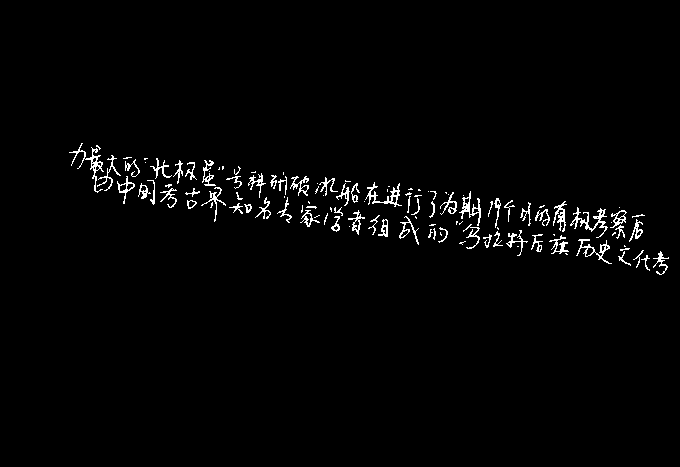 力最大的“北极星”号科研破冰船在进行了为期19个月的南极考察后
由中国考古界知名专家学者组成的“乌拉特后旗历史文化考